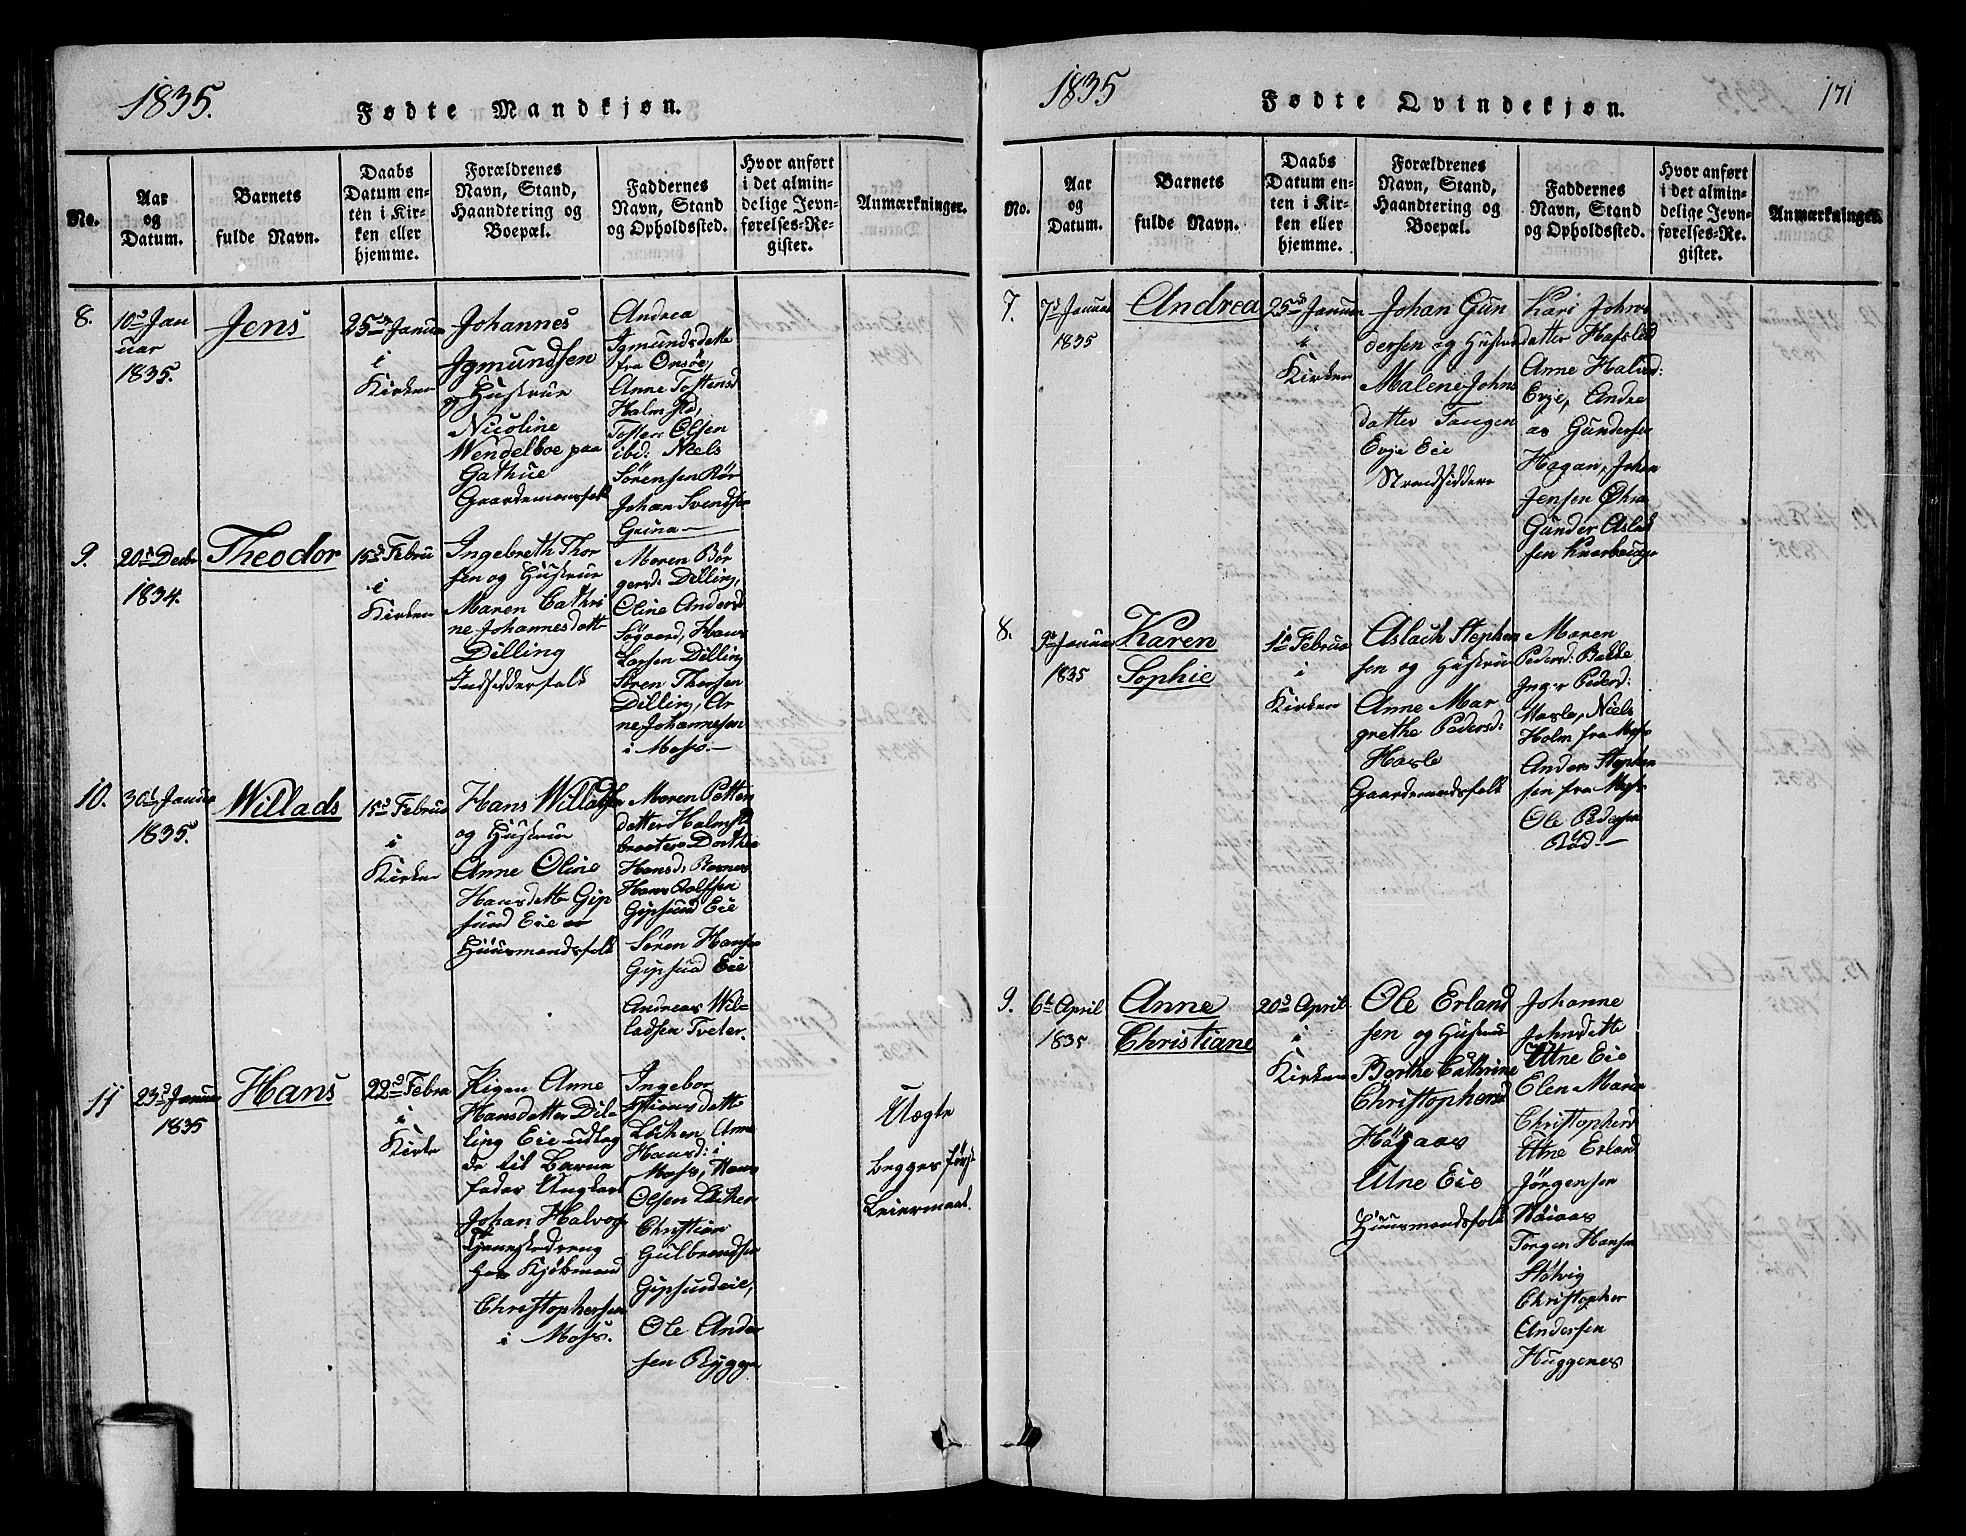 1835.
Fødte Mandkjøn.
No.
Aar
og
Datum.
Barnets
fulde Navn.
Daabs
Datum en-
ten i Kir-
ken eller
hjemme.
Forældrenes
Navn, Stand,
Haandtering og
Boepæl.
Faddernes
Navn, Stand
og Opholdssted.
Hvor anført
i det almin-
delige Jevn-
førelses-Re-
gister.
Anmærkninger.
8.
10de Jan
uar
1835.
Jens
25de Januar
i
Kirken
Johannes
Igmundsen
og Hustrue
Nicoline
Wendelboe paa
Gathue
Gaardemandsfolk
Andrea
Igmundsdatte
fra Onsøe,
Anne Tostensd
Tosten Olsen
ibd: Niels
Sørensen Rør
Johan Svendsen
Grina
9.
20de Decbr
1834.
Theodor
15de Febru
i
Kirken
Ingebreth Thor
sen og Hustrue
Maren Cathri
ne Johannesdatt
Dilling
Indsidderfolk
Maren Bør
gersd: Dilling,
Oline Andersd
Søgaard, Hans
Larsen Dilling
Søren Thorsen
Dilling, Ar
ne Johannesen
i Moss.
10.
30de Januar
1835.
Willads
15de Februa
i
Kirken
Hans Willadsen
og Hustrue
Anne Oline
Hansdatte Gip
sund Eie
Huusmandsfolk
Maren Petters
datter Halmst
Dorthe
Hansd:
Hans Rolfsen
Gipsund Eie
Søren Hanse
Gipsund Eie
Andreas Wil-
ladsen Tveter.
11
23de Januar
1835
Hans
22de Febru
i
Kirke
Pigen Anne
Hansdatter Dil
ling Eie udlag
de til Barne
fader Ungkarl
Johan Halvors
Tjenestedreng
hos Kjøbmand
Christophersen
i Moss.
Ingebor
Anne
Hansd: i
Moss, Hans
Olsen
Christian
Gulbrandsen
Gipsundeie,
Ole Ander
sen Rygge
Uægte
begges første
Leiermaal.
1835
Fødte Qvindekjøn.
171
No.
Aar
og
Datum.
Barnets
fulde Navn.
Daabs
Datum en-
ten i Kir-
ken eller
hjemme.
Forældrenes
Navn, Stand,
Haandtering og
Boepæl.
Faddernes
Navn, Stand
og Opholdssted.
Hvor anført
i det almin-
delige Jevn-
førelses-Re-
gister.
Anmærkninger.
7.
7de Januar
1835
Andrea
25de Januar
i
Kirken
Johan Gun
dersen og Hustru
Malene Johns
datter Tangen
Evje Eie
Strandsiddere
Kari Johns
datter Hafslod
Anne Halvd:
Evje, Andre
as Gundersen
Hagan, Johan
Jensen
Gunder Aslak
sen
8.
9de Januar
1835
Karen
Sophie
1de Februa
i
Kirken
Aslach Stephen
sen og Hustrue
Anne Mar
grethe Pedersd:
Hasle
Gaardemandsfolk
Maren
Pedersd: Bakke
Inger Pedersd:
Hasle, Niels
Holm fra Moss
Anders Stephen
sen fra Moss
Ole Pedersen
Rød
9.
6te April
1835
Anne
Christiane
20de April
i
Kirken
Ole Erland
sen og Hustrue
Berthe Cathrine
Christophersd
Høgaas
Utne Eie
Huusmandsfolk
Johanne
Johnsdatte
Utne Eie
Elen Maria
Christophersd
Utne Erland
Jørgensen
Høiaas
Torgen Hansen
Støtvig
Christopher
Andersen
Huggenes